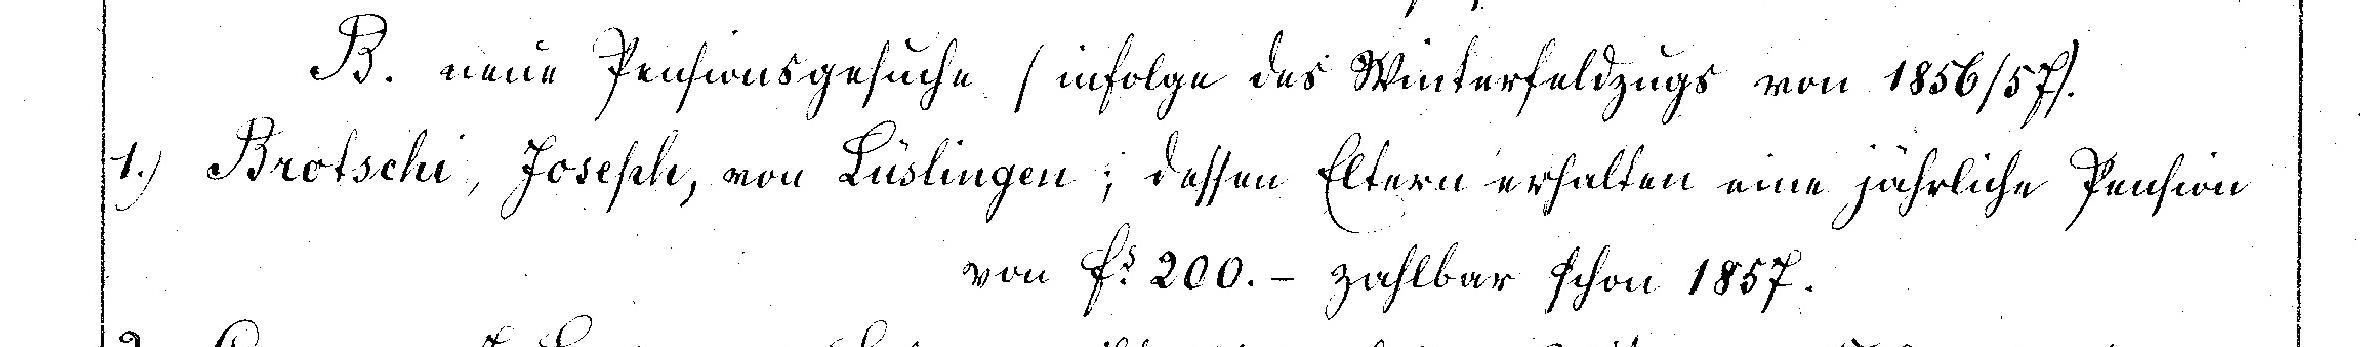 B. neue Pensionsgesuche (infolge des Winterfeldzugs von 1856/57).
1.) Brotschi, Joseph, von Lüslingen; dessen Eltern erhalten eine jährliche Pension
von fs. 200.- zahlbar schon 1857.